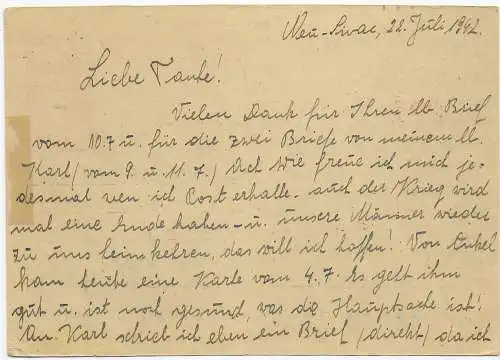 Neu-Sivac, 22. Juli 1942.
Liebe Tante!
Vielen Dank für Ihren lb. Brief
vom 10.7 u. für die zwei Briefe von meinem lb.
Karl (vom 9. u. 11.7.) Ach wie freue ich mich je-
desmal wen ich Post erhalle. auch der Krieg wird
mal eine Ende haben - u. unsere Männer wieder
zu uns heimkehren, das will ich hoffen! Von Onkel
kam heute eine Karte vom 4.7. Es geht ihm
gut u. ist noch gesund, was die Hauptsache ist!
An Karl schrieb ich eben ein Brief (direkt) da ich